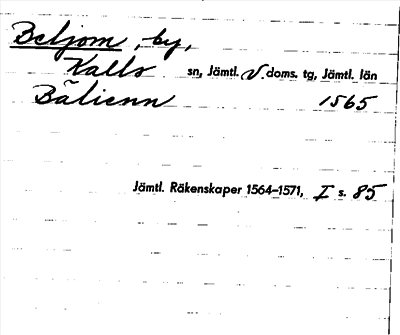 Beljom, by,
Kalls sn, Jämtl. V. doms. tg, Jämtl. län
Bälienn 1565
Jämtl. Räkenskaper 1564–1571, I s. 85